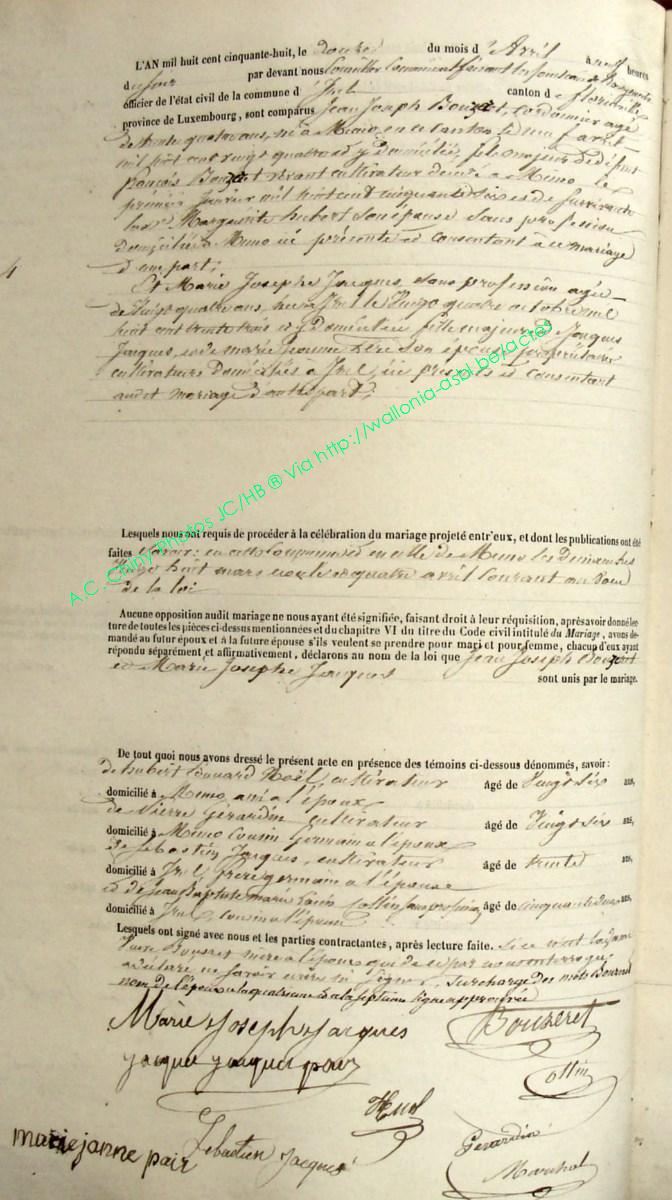 L'AN mil huit cent cinquante-huit, le douze du mois d'Avril à neuf heures
du jour par devant nous Conseiller Communal faisant les fonctions de Bourgmestre
officier de l'état civil de la commune d'Izel canton de florenville
province de Luxembourg, sont comparus Jean Joseph Bouzret, Cordonnier agé
de trente quatre ans, né à Muno, en ce Canton le
mil huit cent vingt quatre et y domicilié, fils majeur de défunt
françois Bouzret vivant cultivateur décédé à Muno le
premier Janvier mil huit cent cinquante six et de survivante
Marguerite hubert son épouse sans profession
domiciliée à Muno ici présente et consentant à ce mariage
d'une part;
4
Et Marie Josephe Jacques, sans profession agée
de Vingt quatre ans, née à Izel le Vingt quatre octobre mil
huit cent trente trois et y domiciliée fille majeure de Jacques
Jacques, et de marie jeanne son épouse propriétaires
cultivateurs Domiciliés à Izel, ici présents et Consentant
audit mariage d'autre part;
A.C. Chiny Photos JC/HB ® Via http://wallonia-asbl.be/actes
Lesquels nous ont requis de procéder à la célébration du mariage projeté entr'eux, et dont les publications ont été
faites savoir: en cette Commune et en celle de Muno les Dimanches
Vingt huit mars et quatre avril Courant au vœu
de la loi
Aucune opposition audit mariage ne nous ayant été signifiée, faisant droit à leur réquisition, après avoir donné lec-
ture de toutes les pièces ci-dessus mentionnées et du chapitre VI du titre du Code civil intitulé du Mariage, avons de-
mandé au futur époux et à la future épouse s'ils veulent se prendre pour mari et pour femme, chacun d'eux ayant
répondu séparément et affirmativement, déclarons au nom de la loi que Jean Joseph Bouzret
et Marie Josephe Jacques sont unis par le mariage.
De tout quoi nous avons dressé le présent acte en présence des témoins ci-dessous dénommés, savoir:
de hubert Edouard Noël, cultivateur âgé de Vingt six ans,
domicilié à Muno ami à l'époux
de Pierre Gérardin cultivateur âgé de Vingt six ans,
domicilié à Muno Cousin Germain à l'époux
de Sébastien Jacques, cultivateur âgé de trente ans,
domicilié à Izel, frère germain à l'épouse
et de Jean Baptiste marie Louis Collin sans profession âgé de cinquante deux ans,
domicilié à Izel, cousin à l'épouse
Lesquels ont signé avec nous et les parties contractantes, après lecture faite. Si ce n'est la dame
Bouzret mère à l'époux qui de ce par nous interrogée
a déclaré ne savoir écrire ni signer, Surcharge des mots Bouzret
nom de l'époux à la quatrième et à la septième ligne approuvée
Marie Joseph Jacques Bouzeret
jacque jacques Collin
Noël
marie janne Sebastien Jacques Gerardin
Maréchal